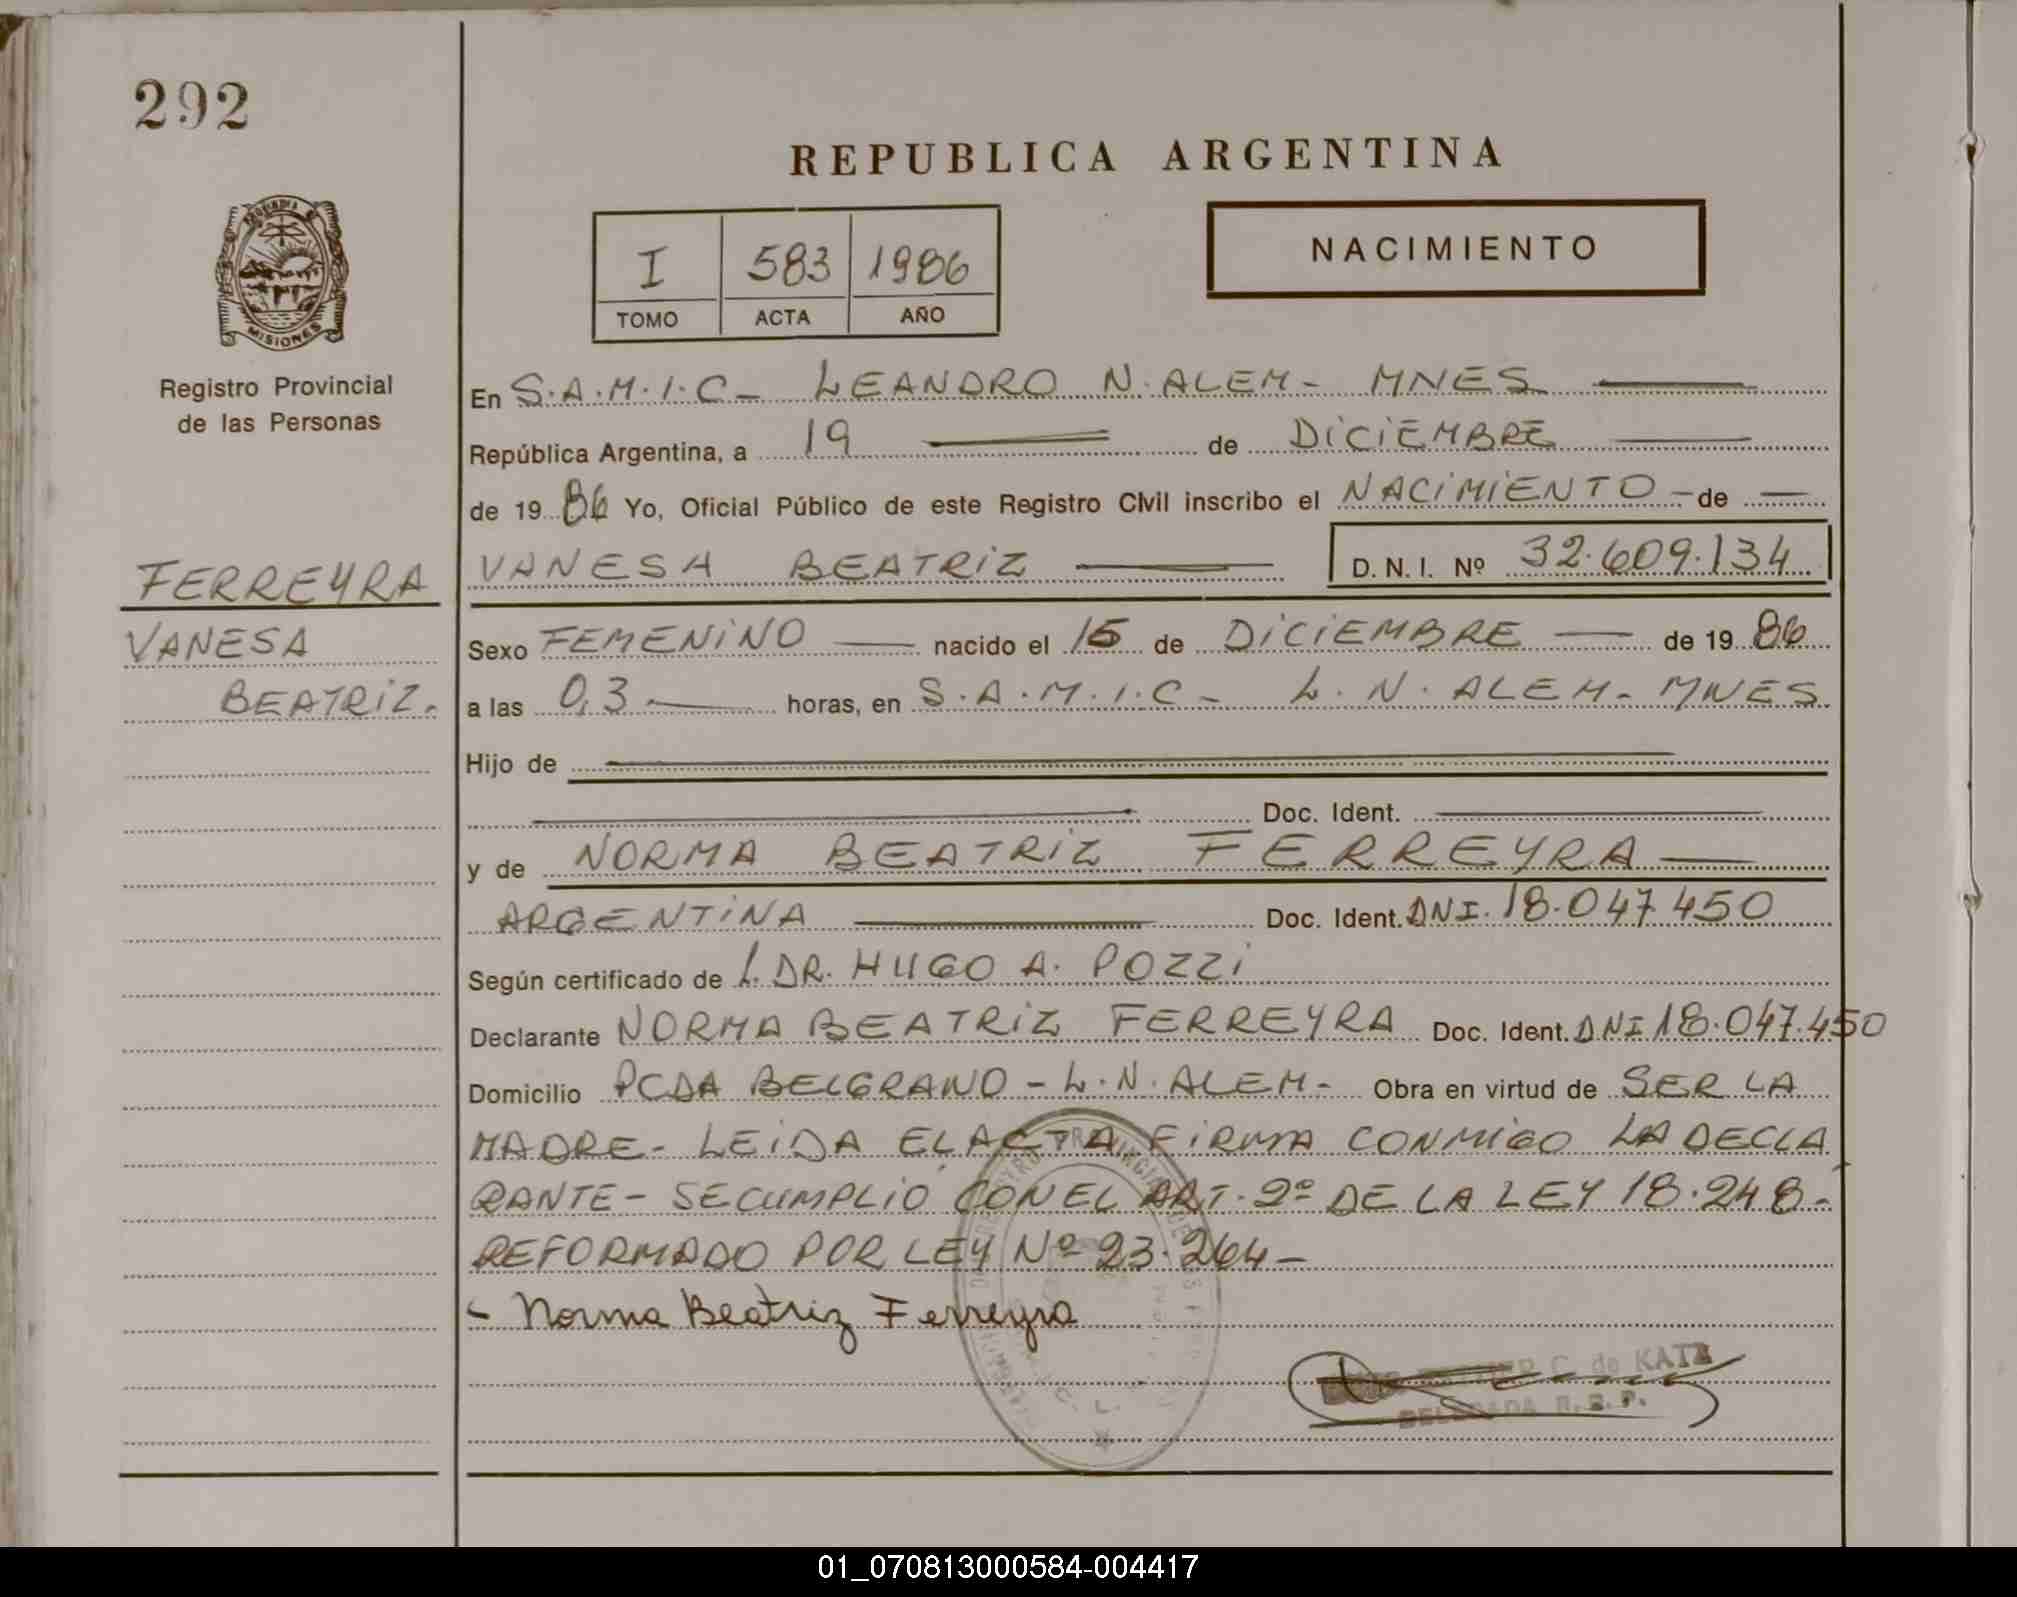 292
REPUBLICA ARGENTINA
I 583 1986
TOMO ACTA AÑO
NACIMIENTO
MISIONES
Registro Provincial
de las Personas
En S.A.M.I.C - LEANDRO N. ALEM - MNES
República Argentina, a 19 de DICIEMBRE
de 19 86 Yo, Oficial Público de este Registro Civil inscribo el NACIMIENTO - de
FERREYRA
VANESA BEATRIZ D. N. I. Nº 32.609.134
VANESA
BEATRIZ.
Sexo FEMENINO nacido el 15 de DICIEMBRE de 19 86
a las 0,3 horas, en S.A.M.I.C - L.N. ALEM - MNES
Hijo de
Doc. Ident.
y de NORMA BEATRIZ FERREYRA
ARGENTINA Doc. Ident. DNI. 18.047.450
Según certificado de L. DR. HUGO A. POZZI
Declarante NORMA BEATRIZ FERREYRA Doc. Ident. DNI 18.047.450
Domicilio PCDA BELGRANO - L.N. ALEM - Obra en virtud de SER LA
MADRE - LEIDA EL ACTA, FIRMA CONMIGO LA DECLA
RANTE - SE CUMPLIO CON EL ART. 2º DE LA LEY 18.248 -
REFORMADO POR LEY Nº 23.264 -
- Norma Beatriz Ferreyra
C. de KATZ
DELEGADA R.P.P.
01_070813000584-004417